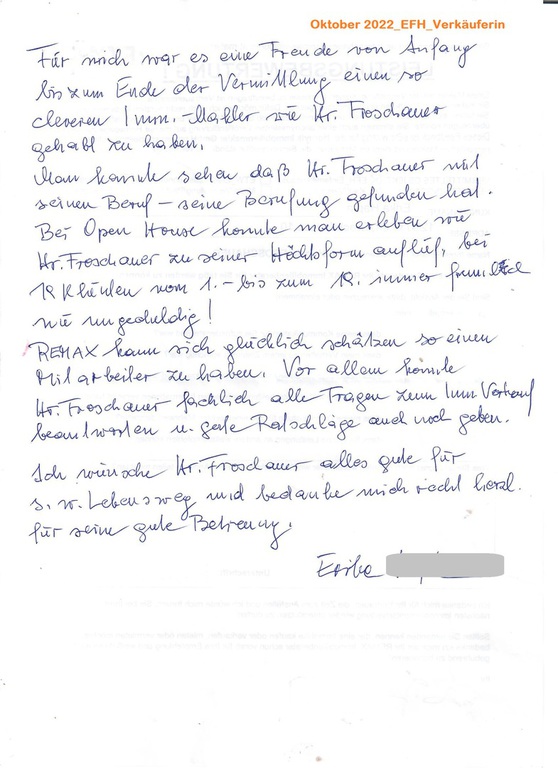 Oktober 2022_EFH_Verkäuferin
Für mich war es eine Freude von Anfang
bis zum Ende der Vermittlung einen so
cleveren Imm.-Makler wie Hr. Froschauer
gehabt zu haben.
Man konnte sehen daß Hr. Froschauer mit
seinen Beruf – seine Berufung gefunden hat.
Bei Open House konnte man erleben wie
Hr. Froschauer zu seiner Höchtsform auflief, bei
Kunden vom 1. – bis zum immer freundlich
nie ungeduldig!
REMAX kann sich glücklich schätzen so einen
Mitarbeiter zu haben. Vor allem konnte
Hr. Froschauer fachlich alle Fragen zum Imm Verkauf
beantworten u. gute Ratschläge auch noch geben.
Ich wünsche Hr. Froschauer alles gute für
s. w. Lebensweg und bedanke mich recht herzl.
für seine gute Betreuung.
Erika